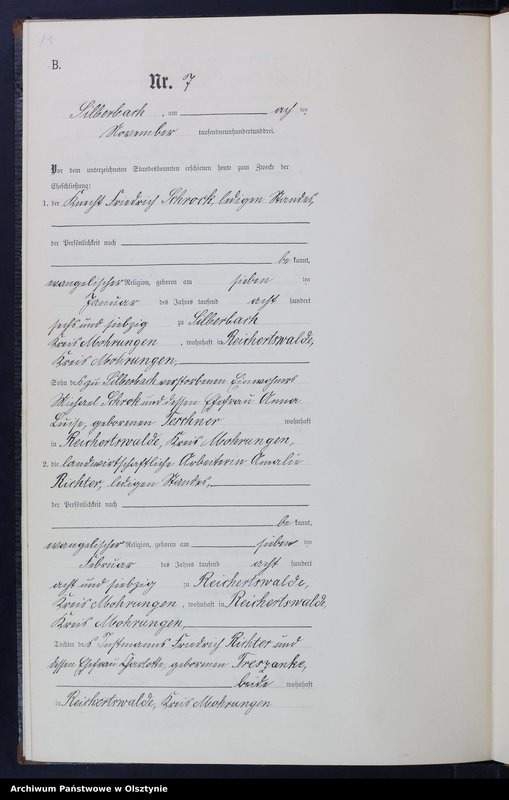 B.
Nr. 7
Silberbach, am ach ten
November tausendneunhundertunddrei.
Vor dem unterzeichneten Standesbeamten erschienen heute zum Zwecke der
Eheschließung:
1. der Knecht Friedrich Schrock, ledigen Standes,
der Persönlichkeit nach
be kannt,
evangelischer Religion, geboren am sieben ten
Januar des Jahres tausend acht hundert
sechs und siebzig zu Silberbach
Kreis Mohrungen, wohnhaft in Reichertswalde,
Kreis Mohrungen,
Sohn des zu Silberbach verstorbenen Einwohners
Michael Schrock und dessen Ehefrau Anna
Luise, geborenen Ferchner wohnhaft
in Reichertswalde, Kreis Mohrungen,
2. die landwirtschaftliche Arbeiterin Amalie
Richter, ledigen Standes,
der Persönlichkeit nach
be kannt,
evangelischer Religion, geboren am sieben ten
Februar des Jahres tausend acht hundert
acht und siebzig zu Reichertswalde,
Kreis Mohrungen, wohnhaft in Reichertswalde,
Kreis Mohrungen,
Tochter des Instmanns Friedrich Richter und
dessen Ehefrau Charlotte, geborenen
beide wohnhaft
in Reichertswalde, Kreis Mohrungen
Archiwum Państwowe w Olsztynie